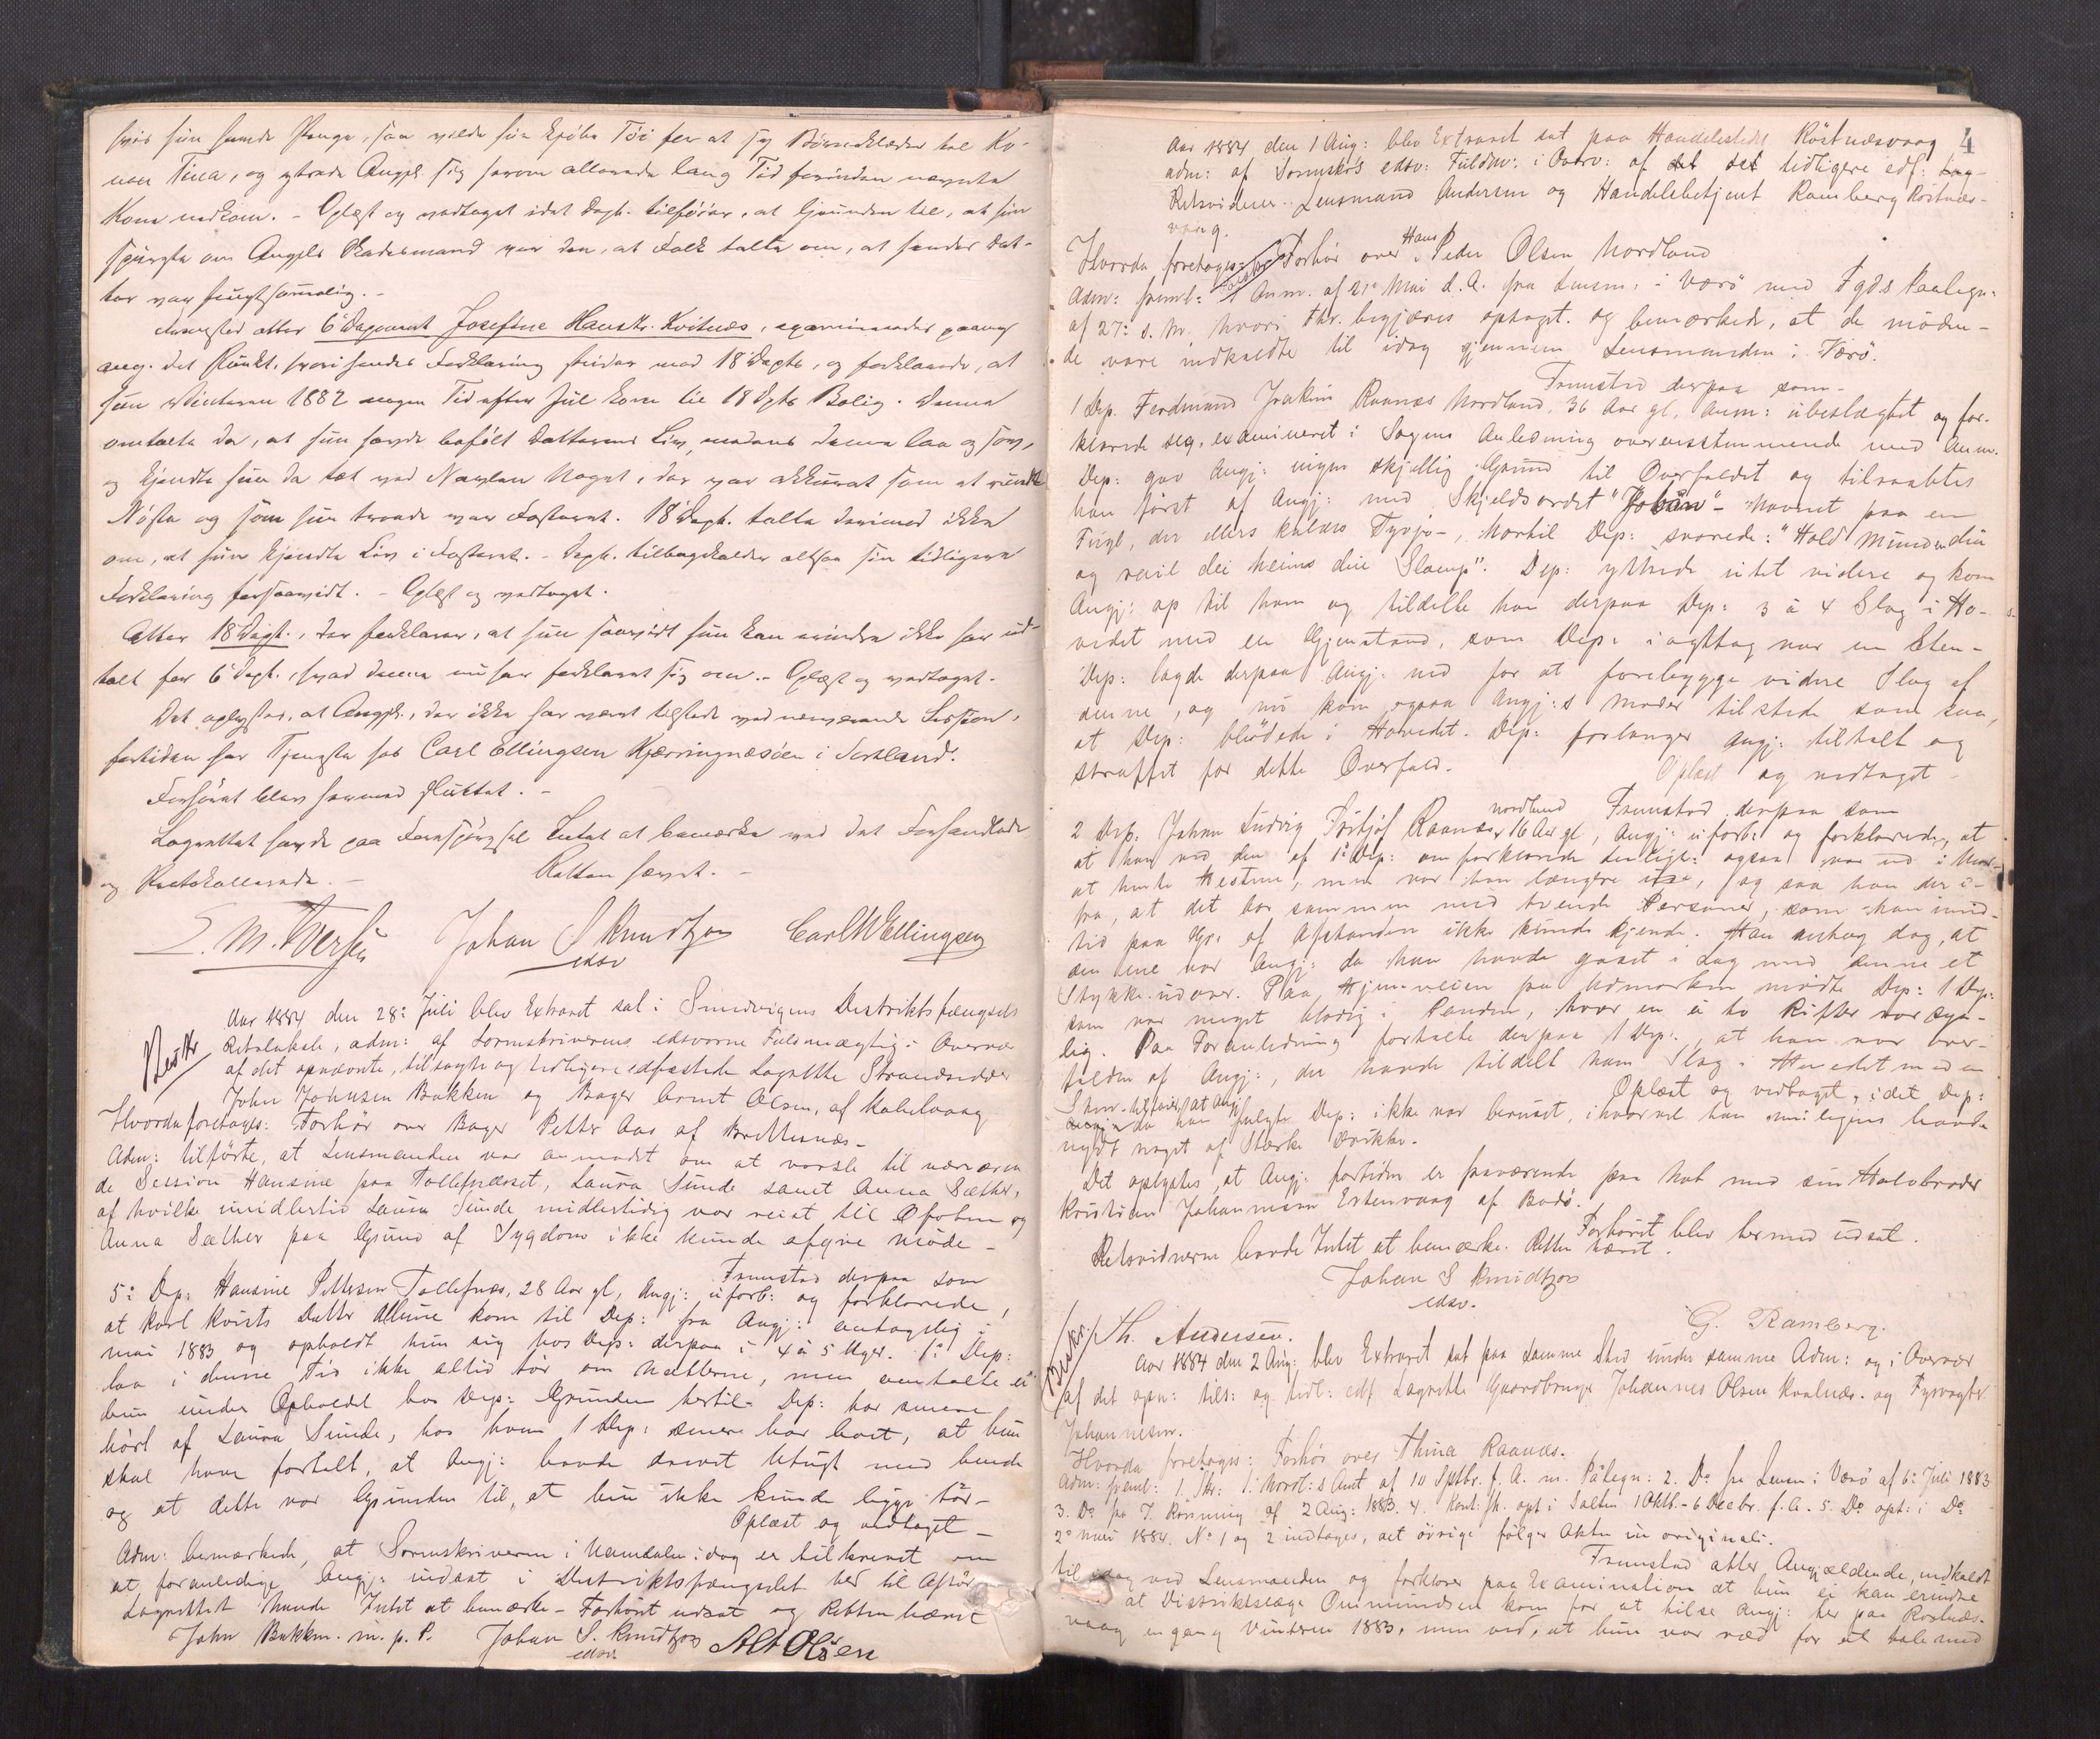 hvis hun havde Penge, saa vilde hun kjøbe Tøi for at sy Børneklæder til Ko-
nen Tina, og ytrede Angjl. sig herom allerede lang Tid forinden nævnte
Kone nedkom. – Oplæst og vedtaget idet Dept. tilføier, at Grunden til, at hun
spurgte om Angjls Kadesmand var den, at Folk talte om, at hendes Dat-
ter var frugtsommelig. –
Fremsted atter 6te Deponent Josefine Hanstr. Kvitnæs, examineredes paany
ang. det Punkt, hvori hendes Forklaring strider mod 18 Depts, og forklarede, at
hun Vinteren 1882 nogen Tid efter Jul kom til 18 Dpts Bolig. Denne
omtalte da, at hun havde befølt Datterens Liv, medens denne laa og sov,
og kjendte hun da tæt ved Navlen Noget, der var akkurat som et rundt
Nøste og som hun troede var Fosteret. 18 Dept. talte derimod ikke
om, at hun kjendte Liv i Fosteret. – Dept. tilbagekalder altsaa sin tidligere
Forklaring forsaavidt. – Oplæst og vedtaget.
Atter 18 Dept., der forklarer, at hun saavidt hun kan erindre ikke har ud-
talt for 6 Dept., hvad denne nu har forklaret sig om. – Oplæst og vedtaget. –
Det oplystes, at Angjl., der ikke har været tilstede ved nærværende Session,
fortiden har Tjeneste hos Carl Ellingsen Kjærringnæsøen i Sortland.
Forhøret blev hermed sluttet. –
Lagrettet havde paa Foresspørgsel Intet at bemærke ved det Forhandlede
og Protokollerede. – Retten hævet. –
E. M. Iversen Johan S Knudtzon Carl W Ellingsen
edsv
Aar 1884 den 28: Juli blev Extraret sat i Svindvigens Distriktsfængsels
Retslokale, adm: af Sorenskriverens edsvorne Fuldmægtig i Overvær
af det opnævnte, tilsagte og tidligere edfæstede Lagrette Strandsidder
John Johnsen Bakken og Bager Arnt Olsen, af Kabelvaag
Hvorda foretoges: Forhør over Bager Petter Aas af Brettesnæs –
Adm: tilførte, at Lensmanden var anmodet om at varsle til nærværen
de Session Hansine paa Tollefnæsset, Laura Sunde samt Anna Sæther,
af hvilke imidlertid Laura Sunde midlertidig var reist til Ofoten og
Anna Sæther paa Grund af Sygdom ikke kunde afgive Møde –
Fremstod derpaa som
5: Dep: Hansine Pettersen Tollefnæs, 28 Aar gl, Angj: uforb: og forklarede,
at Karl Kvists Datter Alhine kom til Dep: fra Angj: antagelig i
Mai 1883 og opholdt hun sig hos Dep: derpaa i 4 à 5 Uger. 1: Dep:
laa i denne Tid ikke altid tør om Nætterne, men omtalte ei
hun under Opholdet hos Dep: Grunden hertil. Dep: har senere
hørt af Laura Sunde, hos hvem 1 Dep: senere har boet, at hun
skal have fortalt, at Angj: havde drevet Utugt med hende
og at dette var Grunden til, at hun ikke kunde ligge tør –
Oplæst og vedtaget –
Adm: bemærkede, at Sorenskriveren i Namdalen idag er tilskrevet om
at foranledige Angj: indsat i Distriktsfængslet her til Afhør
Lagrettet havde Intet at bemærke – Forhøret udsat og Retten hævet
John Bakken. m. p. P. Johan S. Knudtzon Alt Olsen
edsv
4
Aar 1884 den 1 Aug: blev Extraret sat paa Handelsstedet Röstnæsvaag
adm: af Sorenskrs edsv: Fuldm: i Overv: af det tidligere edf: Lag-
Retsvidner Lensmand Andersen og Handelsbetjent Ramberg Röstnæs-
vaag.
Hvorda foretoges: Forhør over Hans Peder Olsen Nordland
Adm: freml: 1 Anm. af 21de Mai d. A. fra Lensm: i Værö med Fgds Paalegn:
af 27: s. M. hvori Fhr. begjæres optaget. og bemærkede, at de möden-
de vare indkaldte til idag gjennem Lensmanden i Værö.
Fremstod derpaa som
1 Dep. Ferdinand Joakim Raanæs Nordland, 36 Aar gl, Anm: ubeslægtet og for-
klarede sig, examineret i Sagens Anledning overensstemmende med Anm.
Dep: gav Angj: ingen skjellig Grund til Overfaldet og tilraabtes
han först af Angj: med Skjeldsordet "Jobän" – Navnet paa en
Fugl, der ellers kaldes Tyvjo –, hvortil Dep: svarede: "Hold Munden din
og reis dei heim din Slamp". Dep: yttrede intet videre og kom
Angj: op til ham og tildelte han derpaa Dep: 3 à 4 Slag i Ho-
vedet med en Gjenstand, som Dep: iagttog var en Sten –
Dep: lagde derpaa Angj: ned for at forebygge videre Slag af
denne, og nu kom ogsaa Angj:s Moder tilstede som saa,
at Dep: blödede i Hovedet. Dep: forlanger Angj: tiltalt og
straffet for dette Overfald. Oplæst og vedtaget –
Fremstod derpaa som
2 Dep: Johan Ludvig Fritjof Raanæs Nordland, 16 Aar gl, Angj: uforb: og forklarede, at
at han ved den af 1ste Dep: omforklarede Leilighed: ogsaa var ud i Mar-
at hente Hestene, men var han længere ude, og saa han der i-
fra, at det bar sammen med tvende Personer, som han imid-
tid paa Gr: af Afstanden ikke kunde kjende. Han antog dog, at
den ene var Angj: da han havde gaaet i Lag med denne et
Stykke udover. Paa Hjemveien paa Udmarken mödte Dep: 1 Dep:
som var meget blodig i Panden, hvor en à to Rifter var syn-
lig. Paa Foranledning fortalte derpaa 1 Dep:, at han var over-
falden af Angj:, der havde tildelt ham Slag i Hovedet med en
Sten. Oplæst og vedtaget, idet Dep:
tilföier, at Angj: da han fulgte Dep: ikke var beruset, ihvorvel han muligens havde
nydt noget af stærke Drikke.
Det oplystes, at Angj: fortiden er fraværende paa Not med sin Halvbroder
Kristian Johannesen Estenvaag af Bodö.
Forhöret blev hermed udsat.
Retsvidnerne havde Intet at bemærke. Retten hævet.
Johan S Knudtzon
edsv.
G. Ramberg.
Th. Andersen.
Aar 1884 den 2 Aug: blev Extraret sat paa samme Sted under samme Adm: og i Overvær
af det opn: tils: og tidl: edf Lagrette Gaardbruger Johannes Olsen Kvalnæs. og Fyrvogter
Johannesen.
Hvorda foretoges: Forhör over Thina Raanæs.
Adm: freml: 1. Skr: f. Nordl:s Amt af 10 Septbr. f. A. m. Pålegn: 2. Do: fra Lensm: i Værö af 6: Juli 1883
3. Do fra J. Rönning af 2 Aug: 1883. 4. Kont. fh. opt i Salten 1 Oktb. – 6 Decbr. f. A. 5. Do opt: i Do
2 Mai 1884. No 1 og 2 indtages, det övrige fölger Akten in originali.
Fremstod atter Angjældende, indkaldt
til idag ved Lensmanden og forklarer paa Examination at hun ei kan erindre
at Distriktslæge Ommundsen kom for at tilse Angj: her paa Rostnæs-
vaag engang Vinteren 1883, men ved, at hun var ræd for at tale med